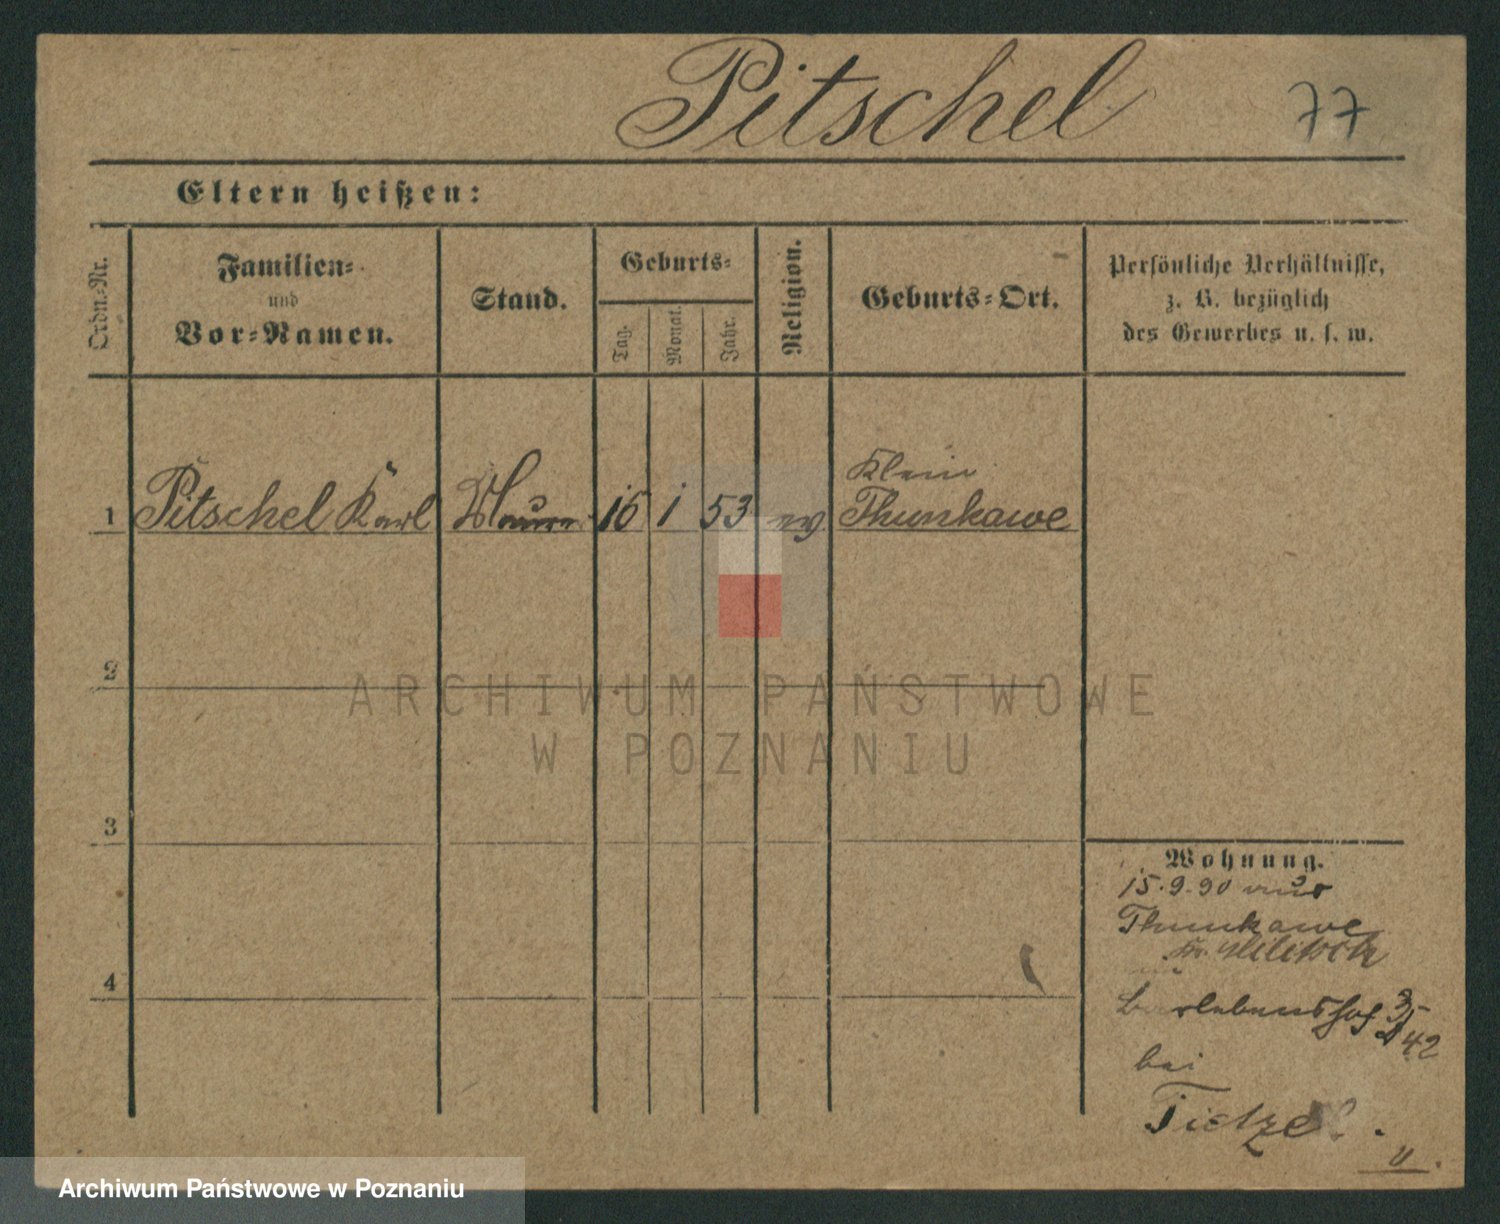 Pitschel
77
Eltern heißen:
Ordn.-Nr.
Familien-
und
Vor-Namen.
Stand.
Geburts-
Tag.
Monat.
Jahr.
Religion.
Geburts-Ort.
Persönliche Verhältnisse,
z. B. bezüglich
des Gewerbes u. s. w.
Klein
1 Pitschel Karl Maurer 16 1 53 ev Thunkawe
2
ARCHIWUM PAŃSTWOWE
W POZNANIU
3
Wohnung.
15.9.90 aus
Thunkawe
Kr. Militsch
4
bei
Tietze.
Archiwum Państwowe w Poznaniu